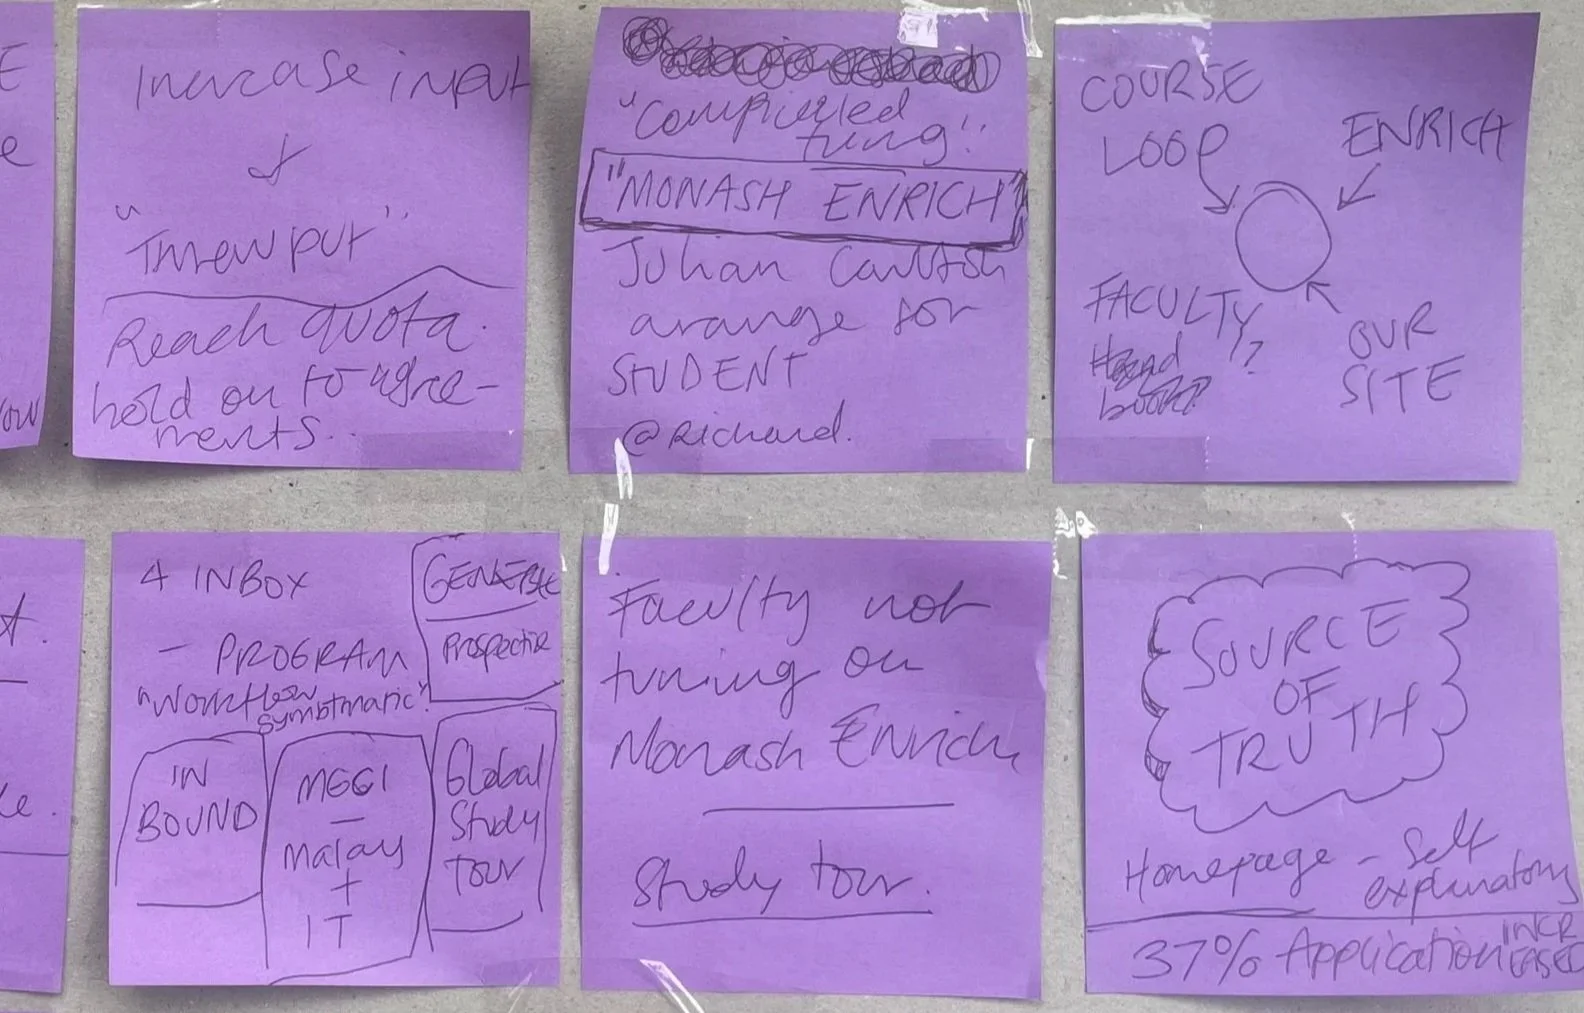 Increase input
+
"Threwput"
Reach quota.
hold on to agree-
ments.
"Complicated
thing".
"MONASH ENRICH"
Julian
arange for
STUDENT
@Richard.
COURSE
LOOP
ENRICH
FACULTY?
Hand
book?
OUR
SITE
4 INBOX
- PROGRAM
"Workflow
GENERIC
Prospective
IN
BOUND
-
Malay
+
IT
Global
Study
Tour
Faculty not
tuning on
Monash Enrich
Study tour.
SOURCE
OF
TRUTH
Homepage - Self
explanatory
37% Application INCR
EASED